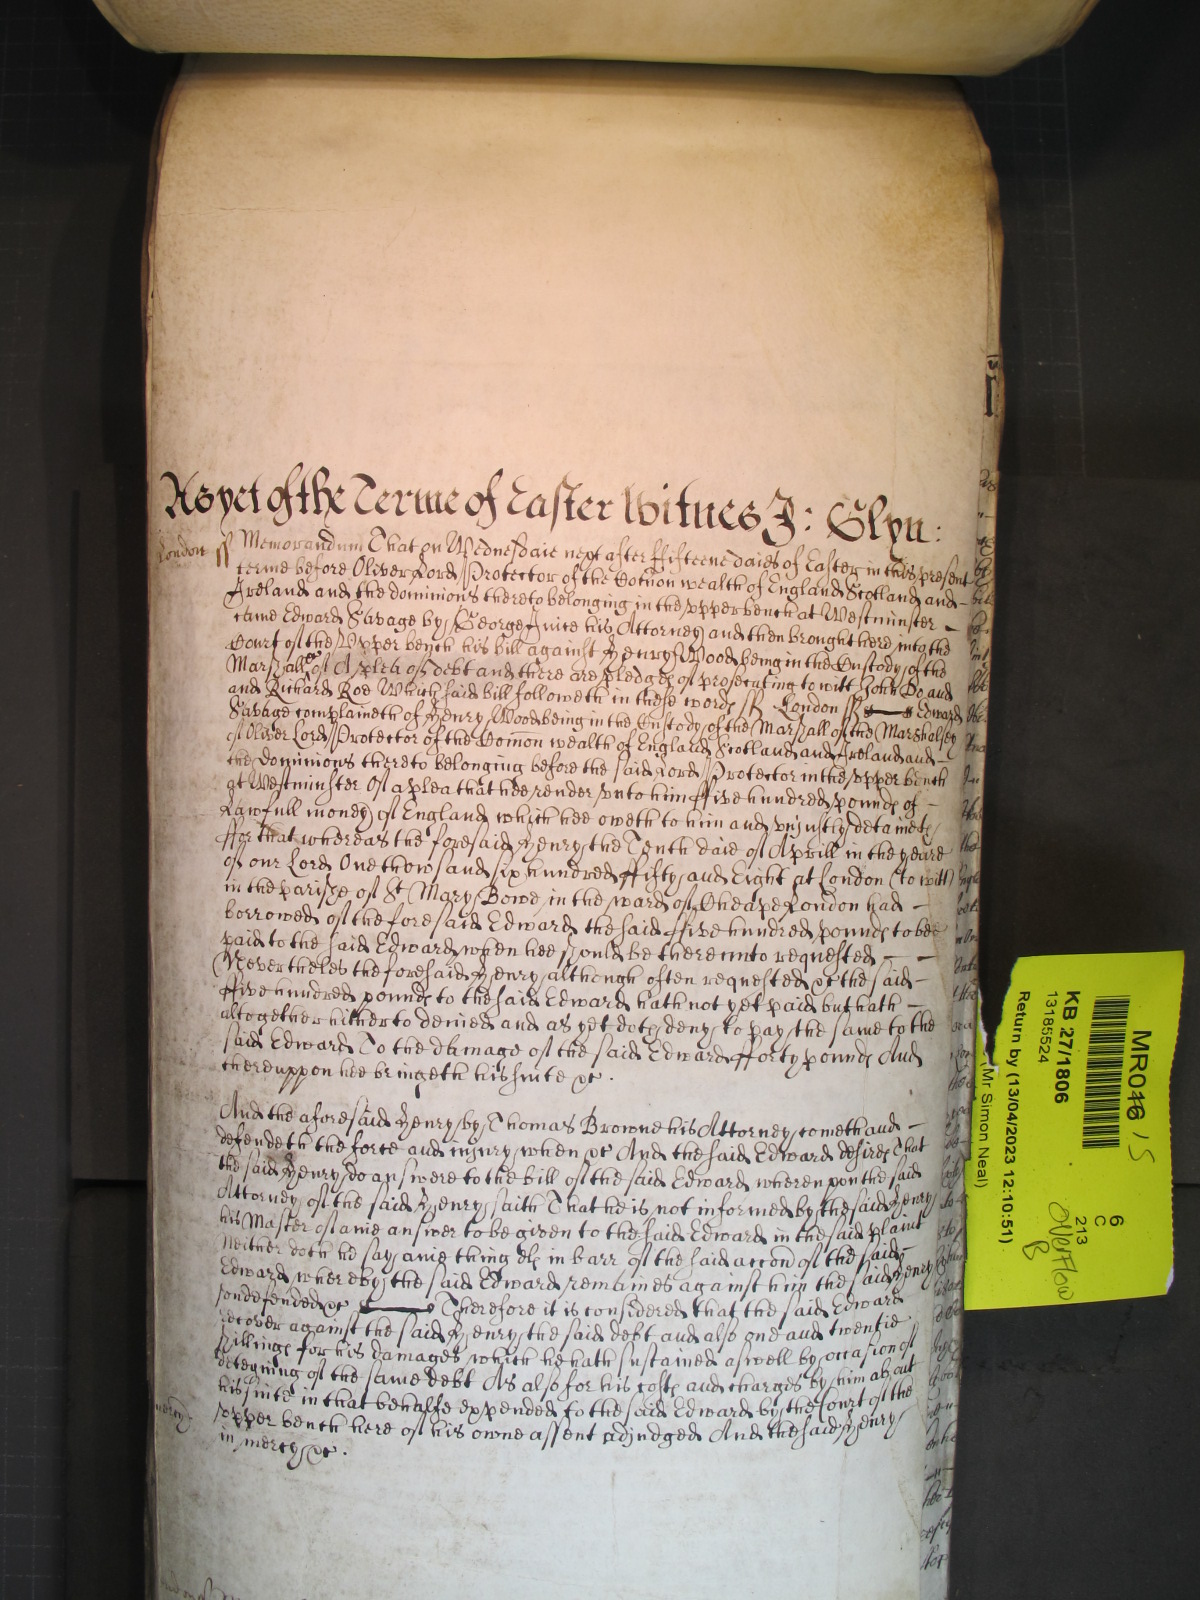 As yet of the Terme of Easter Witnes J: Glyn:
London ss Memorandum That on Wednesdaie next after ffifteene daies of Easter in this present
terme before Oliver Lord Protector of the Comon wealth of England Scotland and
Ireland and the dominions thereto belonging in the upper bench at Westminster
came Edward Savage by George his Attorney and then brought here into the
Court of the Upper bench his bill against Henry Wood being in the Custody of the
Marshall &c of A plea of debt and there are pledges of prosecuting to witt John Do and
and Richard Roe Which said bill followeth in these words ss London ss Edward
Savage complaineth of Henry Wood being in the Custody of the Marshall of the Marshalsey
of Oliver Lord Protector of the Comon wealth of England Scotland and Ireland and
the Dominions thereto belonging before the said Lord Protector in the upper bench
at Westminster Of a plea that hee render unto him ffive hundred pounds of
Lawfull money of England which hee oweth to him and unjustly deteineth
ffor that whereas the foresaid Henry the Tenth daie of Aprill in the yeare
of our Lord One thowsand six hundred ffifty and Eight at London (to witt)
in the parishe of St Mary Bowe in the ward of Cheape London had
borrowed of the foresaid Edward the said ffive hundred pounds to bee
paid to the said Edward when hee should be thereunto requested
Nevertheles the foresaid Henry although often requested &c the said
ffive hundred pounds to the said Edward hath not yet paid but hath
altogether hitherto denied and as yet doth deny to pay the same to the
said Edward To the damage of the said Edward fforty pounds And
thereuppon hee bringeth his suite &c.
And the aforesaid Henry by Thomas Browne his Attorney cometh and
defendeth the force and injury when &c And the said Edward desires That
the said Henry do answere to the bill of the said Edward whereupon the said
Attorney of the said Henry saith That he is not informed by the said Henry
his Master of anie answer to be given to the said Edward in the said plaint
Neither doth he say anie thing els in barr of the said accon of the said
Edward whereby the said Edward remaines against him the said Henry
undefended &c Therefore it is considered that the said Edward
recover against the said Henry the said debt and also one and twentie
shillings for his damages which he hath sustained aswell by occasion of
deteyning of the same debt As also for his costs and charges by him about
his suite in that behalfe expended to the said Edward by the Court of the
upper bench here of his owne assent adjudged And the said Henry
mercy in mercy &c.
MR016 15
KB 27/1806
13185524
Return by (13/04/2023 12:10:51)
(Mr Simon Neal)
6
C
213
overflow
B